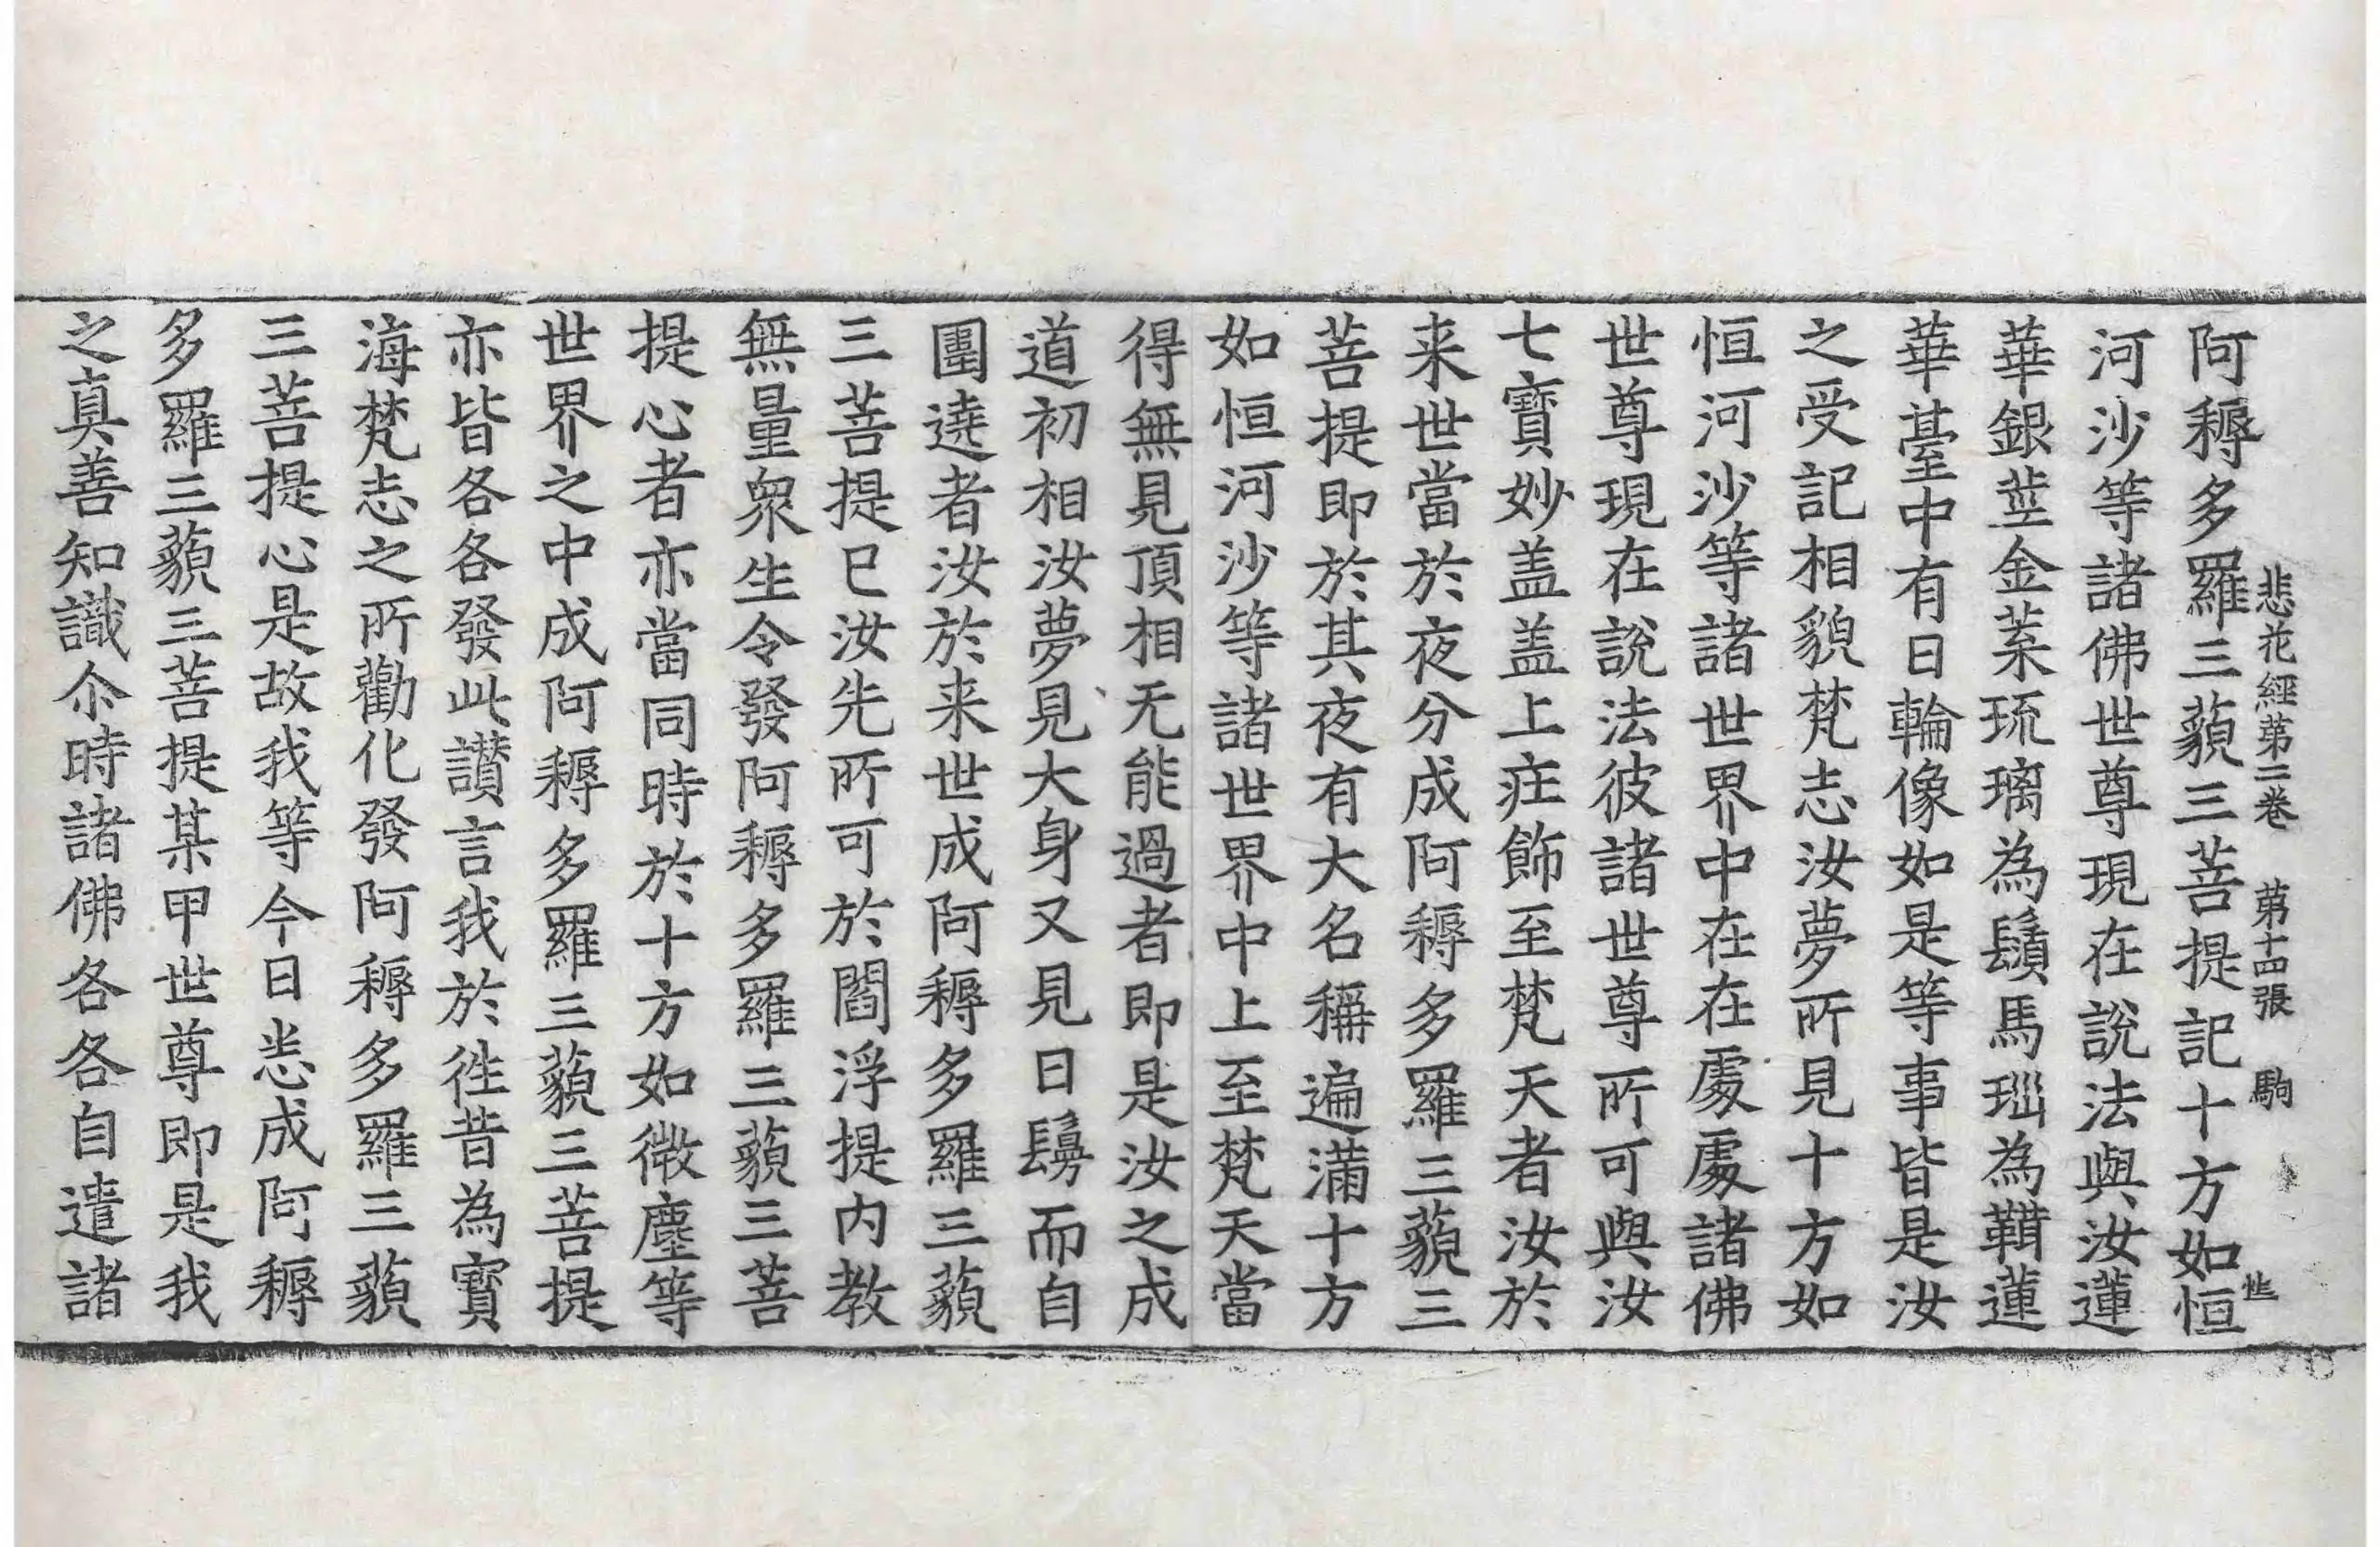 悲花經第二卷　第十四張　駒
阿耨多羅三藐三菩提記十方如恒
河沙等諸佛世尊現在說法與汝蓮
華銀莖金葉琉璃為鬚馬瑙為鞾蓮
華臺中有日輪像如是等事皆是汝
之受記相貌梵志汝夢所見十方如
恒河沙等諸世界中在在處處諸佛
世尊現在說法彼諸世尊所可與汝
七寶妙盖盖上疘飾至梵天者汝於
来世當於夜分成阿耨多羅三藐三
菩提即於其夜有大名稱遍滿十方
如恒河沙等諸世界中上至梵天當
得無見頂相无能過者即是汝之成
道初相汝夢見大身又見日鬘而自
圍遶者汝於来世成阿耨多羅三藐
三菩提已汝先所可於閻浮提内教
無量衆生令發阿耨多羅三藐三菩
提心者亦當同時於十方如微塵等
世界之中成阿耨多羅三藐三菩提
亦皆各各發此讃言我於徃昔為寶
海梵志之所勸化發阿耨多羅三藐
三菩提心是故我等今日悉成阿耨
多羅三藐三菩提某甲世尊即是我
之真善知識尒時諸佛各各自遣諸